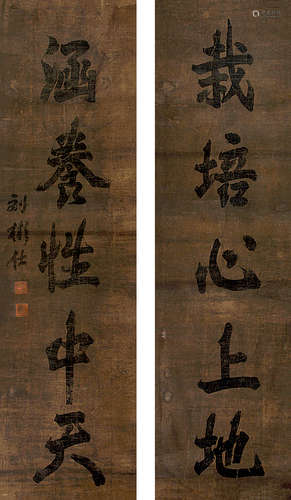 栽培心上地
涵養性中天
刘彬仕